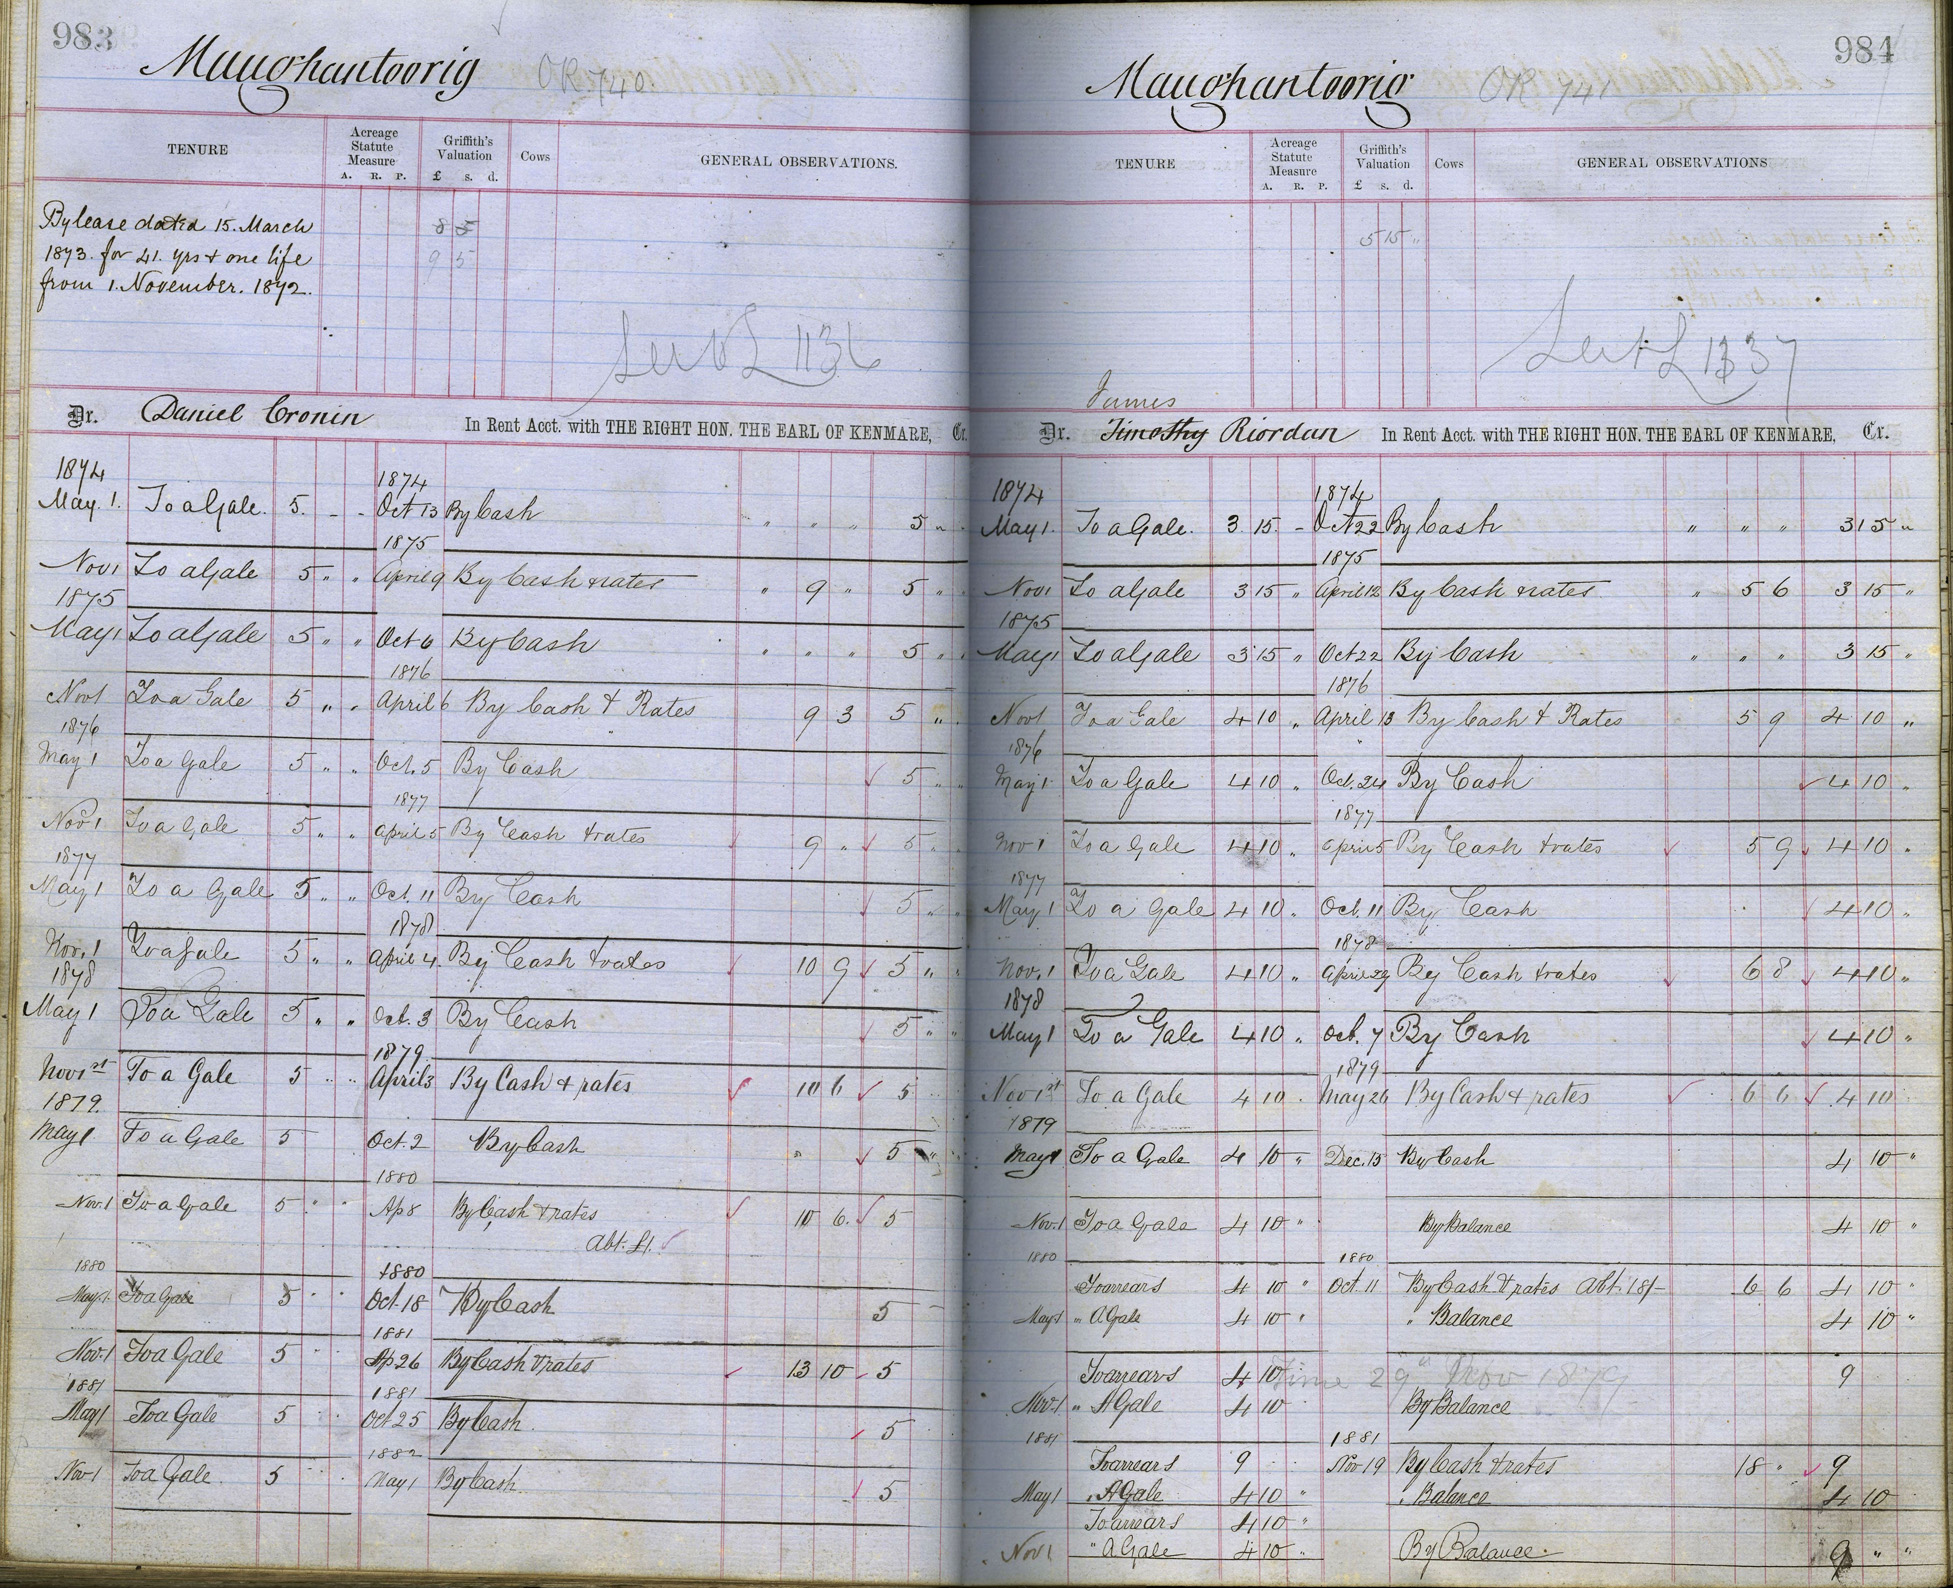 983
Maughantoorig OR 740.
TENURE Acreage Statute Measure Griffith's Valuation Cows GENERAL OBSERVATIONS.
A. R. P. £ s. d.
By lease dated 15. March 8 5
1873. for 41. yrs & one life 9 5
from 1. November. 1872.
Dr. Daniel Cronin In Rent Acct. with THE RIGHT HON. THE EARL OF KENMARE, Cr.
1874 1874
May. 1. To a Gale. 5. - - Oct 13 By Cash " " " 5 " "
1875
Nov 1 To a Gale 5 " " April 9 By Cash & rates " 9 " 5 " "
1875
May 1 To a Gale 5 " " Oct 6 By Cash " " " 5 " "
1876
Nov 1 To a Gale 5 " " April 6 By Cash & Rates 9 3 5 "
1876
May 1 To a Gale 5 " " Oct. 5 By Cash ✓ 5 " "
1877
Nov 1 To a Gale 5 " " April 5 By Cash & rates ✓ 9 " ✓ 5 " "
1877
May 1 To a Gale 5 " " Oct. 11 By Cash ✓ 5 " "
1878
Nov. 1 To a Gale 5 " " April 4. By Cash & rates ✓ 10 9 ✓ 5 " "
1878
May 1 To a Gale 5 " " Oct. 3 By Cash ✓ 5 " "
1879.
Nov 1st To a Gale 5 " " April 3 By Cash & rates ✓ 10 6 ✓ 5
1879.
May 1 To a Gale 5 Oct. 2 By Cash " ✓ 5 "
1880
Nov. 1 To a Gale 5 " " Ap 8 By Cash & rates ✓ 10 6. ✓ 5
Abt. £1. ✓
1880 1880
May 1 To a Gale 5 " " Oct. 18 By Cash 5
1881
Nov. 1 To a Gale 5 " " Ap 26 By Cash & rates ✓ 13 10 ✓ 5
1881 1881
May 1 To a Gale 5 Oct 25 By Cash. ✓ 5
1882
Nov 1 To a Gale. 5 May 1 By Cash. ✓ 5
984
Maughantoorig OR 741
TENURE Acreage Statute Measure Griffith's Valuation Cows GENERAL OBSERVATIONS
A. R. P. £ s. d.
5 15 "
James
Dr. Timothy Riordan In Rent Acct. with THE RIGHT HON. THE EARL OF KENMARE, Cr.
1874 1874
May 1. To a Gale. 3. 15. - Oct 22 By Cash " " " 3 15 "
1875
Nov 1 To a Gale 3 15 " April 12 By Cash & rates " 5 6 3 15 "
1875
May 1 To a Gale 3 15 " Oct 22 By Cash " " " 3 15 "
1876
Nov 1 To a Gale 4 10 " April 13 By Cash & Rates 5 9 4 10 "
1876
May 1 To a Gale 4 10 " Oct. 24 By Cash ✓ 4 10 "
1877
Nov 1 To a Gale 4 10 " April 5 By Cash & rates ✓ 5 9 ✓ 4 10 "
1877
May 1 To a Gale 4 10 " Oct. 11 By Cash ✓ 4 10 "
1878
Nov. 1 To a Gale 4 10 " April 29 By Cash & rates ✓ 6 8 ✓ 4 10 "
1878
May 1 To a Gale 4 10 " Oct. 7 By Cash ✓ 4 10 "
1879
Nov 1st To a Gale 4 10 " May 26 By Cash & rates ✓ 6 6 ✓ 4 10
1879
May 1 To a Gale 4 10 " Dec. 15 By Cash 4 10 "
Nov. 1 To a Gale 4 10 " By Balance 4 10 "
1880 1880
To arrears 4 10 " Oct. 11 By Cash & rates Abt. 18/- 6 6 4 10 "
May 1 " A Gale 4 10 " " Balance 4 10 "
To arrears 4 10 time 29" Nov 1879 9
Nov. 1 " A Gale 4 10 By Balance
1881 1881
To arrears 9 Nov 19 By Cash & rates 18 " ✓ 9
May 1 " A Gale 4 10 " " Balance 4 10
To arrears 4 10 "
Nov 1 " A Gale 4 10 " By Balance. 9 " "